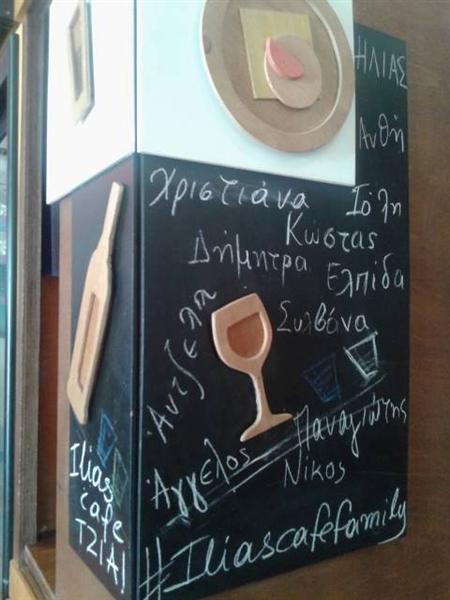 ΗΛΙΑΣ
Ανθή
Χριστιάνα
Ιόλη
Κώστας
Δήμητρα
Ελπίδα
Συλβάνα
Αντζελα
Παναγιώτης
Άγγελος
Νίκος
#Iliascafefamily
Ilias
cafe
ΤΖΙΑ!